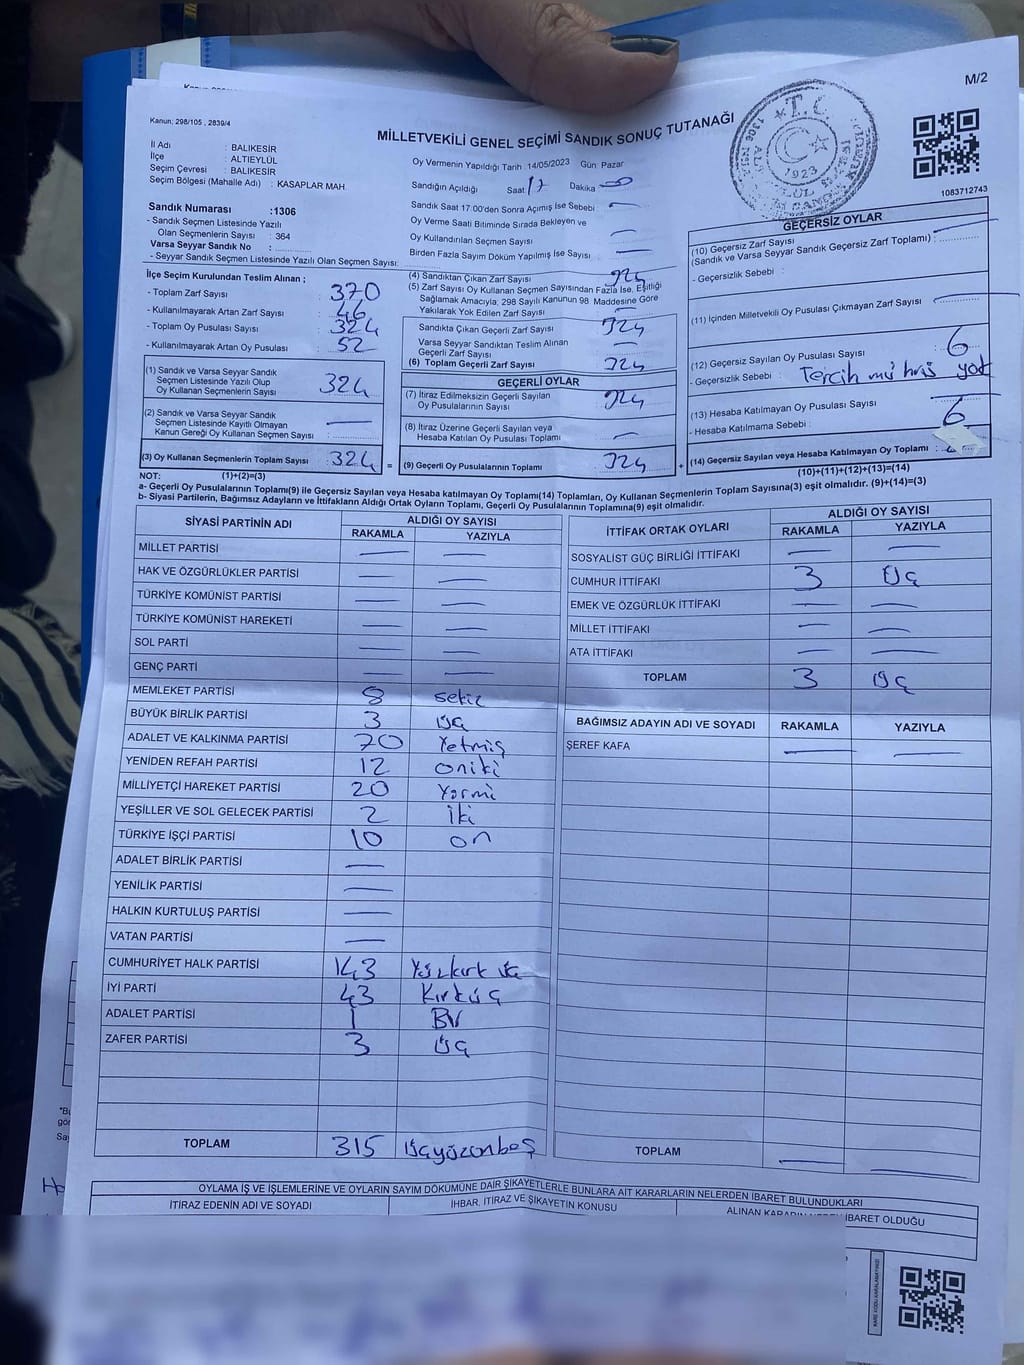 M/2
Kanun; 298/105 , 2839/4
MİLLETVEKİLİ GENEL SEÇİMİ SANDIK SONUÇ TUTANAĞI
T.C.
1923
1083712743
İl Adı : BALIKESİR
İlçe : ALTIEYLÜL
Seçim Çevresi : BALIKESİR
Seçim Bölgesi (Mahalle Adı) : KASAPLAR MAH.
Sandık Numarası :1306
- Sandık Seçmen Listesinde Yazılı
Olan Seçmenlerin Sayısı : 364
Varsa Seyyar Sandık No :
- Seyyar Sandık Seçmen Listesinde Yazılı Olan Seçmen Sayısı:
Oy Vermenin Yapıldığı Tarih :14/05/2023 Gün: Pazar
Sandığın Açıldığı Saat 17 Dakika 00
Sandık Saat 17:00'den Sonra Açılmış İse Sebebi —
Oy Verme Saati Bitiminde Sırada Bekleyen ve
Oy Kullandırılan Seçmen Sayısı —
Birden Fazla Sayım Döküm Yapılmış İse Sayısı —
İlçe Seçim Kurulundan Teslim Alınan ;
- Toplam Zarf Sayısı : 370
- Kullanılmayarak Artan Zarf Sayısı : 46
- Toplam Oy Pusulası Sayısı : 324
- Kullanılmayarak Artan Oy Pusulası : 52
(1) Sandık ve Varsa Seyyar Sandık
Seçmen Listesinde Yazılı Olup
Oy Kullanan Seçmenlerin Sayısı : 324
(2) Sandık ve Varsa Seyyar Sandık
Seçmen Listesinde Kayıtlı Olmayan
Kanun Gereği Oy Kullanan Seçmen Sayısı : —
(3) Oy Kullanan Seçmenlerin Toplam Sayısı : 324
(1)+(2)=(3)
(4) Sandıktan Çıkan Zarf Sayısı 324
(5) Zarf Sayısı Oy Kullanan Seçmen Sayısından Fazla İse, Eşitliği
Sağlamak Amacıyla; 298 Sayılı Kanunun 98. Maddesine Göre
Yakılarak Yok Edilen Zarf Sayısı : —
Sandıkta Çıkan Geçerli Zarf Sayısı : 324
Varsa Seyyar Sandıktan Teslim Alınan
Geçerli Zarf Sayısı : —
(6) Toplam Geçerli Zarf Sayısı : 324
GEÇERLİ OYLAR
(7) İtiraz Edilmeksizin Geçerli Sayılan
Oy Pusulalarının Sayısı : 324
(8) İtiraz Üzerine Geçerli Sayılan veya
Hesaba Katılan Oy Pusulası Toplamı : —
= (9) Geçerli Oy Pusulalarının Toplamı : 324 +
GEÇERSİZ OYLAR
(10) Geçersiz Zarf Sayısı
(Sandık ve Varsa Seyyar Sandık Geçersiz Zarf Toplamı) : —
- Geçersizlik Sebebi :
(11) İçinden Milletvekili Oy Pusulası Çıkmayan Zarf Sayısı : —
(12) Geçersiz Sayılan Oy Pusulası Sayısı : 6
- Geçersizlik Sebebi : Tercih mührü yok
(13) Hesaba Katılmayan Oy Pusulası Sayısı : —
- Hesaba Katılmama Sebebi : 6
(14) Geçersiz Sayılan veya Hesaba Katılmayan Oy Toplamı :
(10)+(11)+(12)+(13)=(14)
NOT:
a- Geçerli Oy Pusulalarının Toplamı(9) ile Geçersiz Sayılan veya Hesaba katılmayan Oy Toplamı(14) Toplamları, Oy Kullanan Seçmenlerin Toplam Sayısına(3) eşit olmalıdır. (9)+(14)=(3)
b- Siyasi Partilerin, Bağımsız Adayların ve İttifakların Aldığı Ortak Oyların Toplamı, Geçerli Oy Pusulalarının Toplamına(9) eşit olmalıdır.
SİYASİ PARTİNİN ADI ALDIĞI OY SAYISI
RAKAMLA YAZIYLA
MİLLET PARTİSİ — —
HAK VE ÖZGÜRLÜKLER PARTİSİ — —
TÜRKİYE KOMÜNİST PARTİSİ — —
TÜRKİYE KOMÜNİST HAREKETİ — —
SOL PARTİ — —
GENÇ PARTİ — —
MEMLEKET PARTİSİ 8 sekiz
BÜYÜK BİRLİK PARTİSİ 3 üç
ADALET VE KALKINMA PARTİSİ 70 Yetmiş
YENİDEN REFAH PARTİSİ 12 oniki
MİLLİYETÇİ HAREKET PARTİSİ 20 Yirmi
YEŞİLLER VE SOL GELECEK PARTİSİ 2 İki
TÜRKİYE İŞÇİ PARTİSİ 10 on
ADALET BİRLİK PARTİSİ —
YENİLİK PARTİSİ —
HALKIN KURTULUŞ PARTİSİ —
VATAN PARTİSİ —
CUMHURİYET HALK PARTİSİ 143 Yüzkırk üç
İYİ PARTİ 43 Kırküç
ADALET PARTİSİ 1 Bir
ZAFER PARTİSİ 3 üç
TOPLAM 315 üçyüzonbeş
İTTİFAK ORTAK OYLARI ALDIĞI OY SAYISI
RAKAMLA YAZIYLA
SOSYALİST GÜÇ BİRLİĞİ İTTİFAKI — —
CUMHUR İTTİFAKI 3 üç
EMEK VE ÖZGÜRLÜK İTTİFAKI — —
MİLLET İTTİFAKI — —
ATA İTTİFAKI — —
TOPLAM 3 üç
BAĞIMSIZ ADAYIN ADI VE SOYADI RAKAMLA YAZIYLA
ŞEREF KAFA — —
TOPLAM — —
OYLAMA İŞ VE İŞLEMLERİNE VE OYLARIN SAYIM DÖKÜMÜNE DAİR ŞİKAYETLERLE BUNLARA AİT KARARLARIN NELERDEN İBARET BULUNDUKLARI
İTİRAZ EDENİN ADI VE SOYADI İHBAR, İTİRAZ VE ŞİKAYETİN KONUSU ALINAN İBARET OLDUĞU